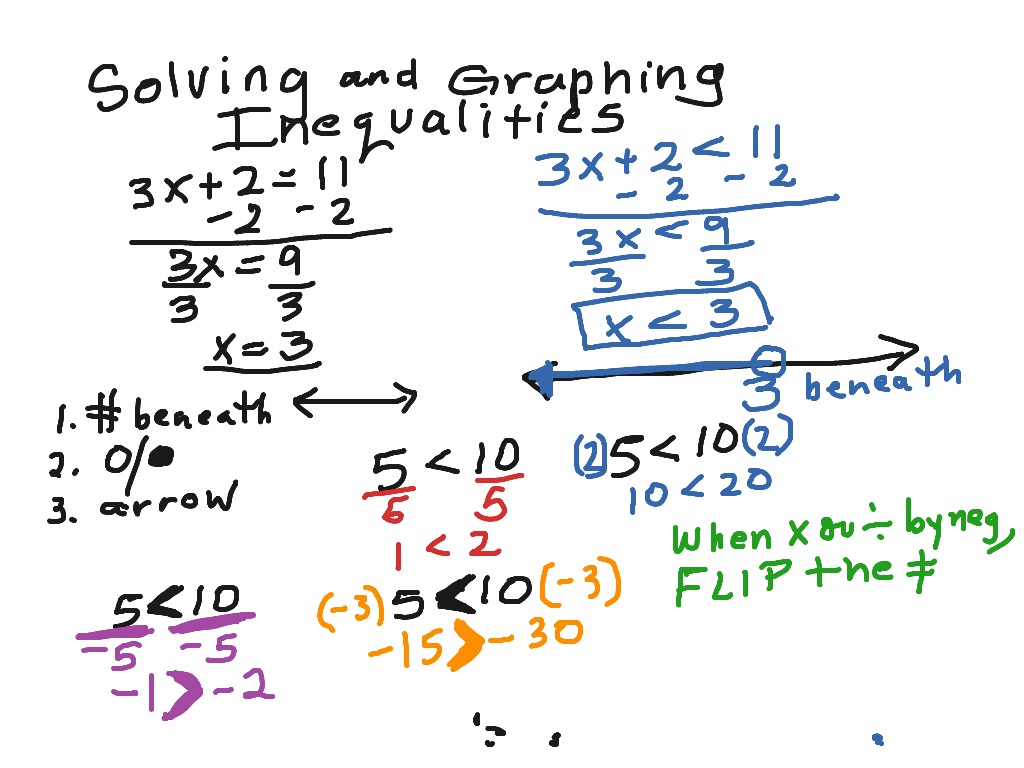 Solving and Graphing
Inequalities
3x + 2 = 11
- 2 - 2
3x = 9
3 3
x = 3
3x + 2 < 11
- 2 - 2
3x < 9
3 3
x < 3
3 beneath
1. # beneath
2. O/●
3. arrow
5 < 10
5 5
1 < 2
(2)5 < 10(2)
10 < 20
When x or ÷ by neg,
FLIP the ≠
5 < 10
-5 -5
-1 > -2
(-3) 5 < 10 (-3)
-15 > -30